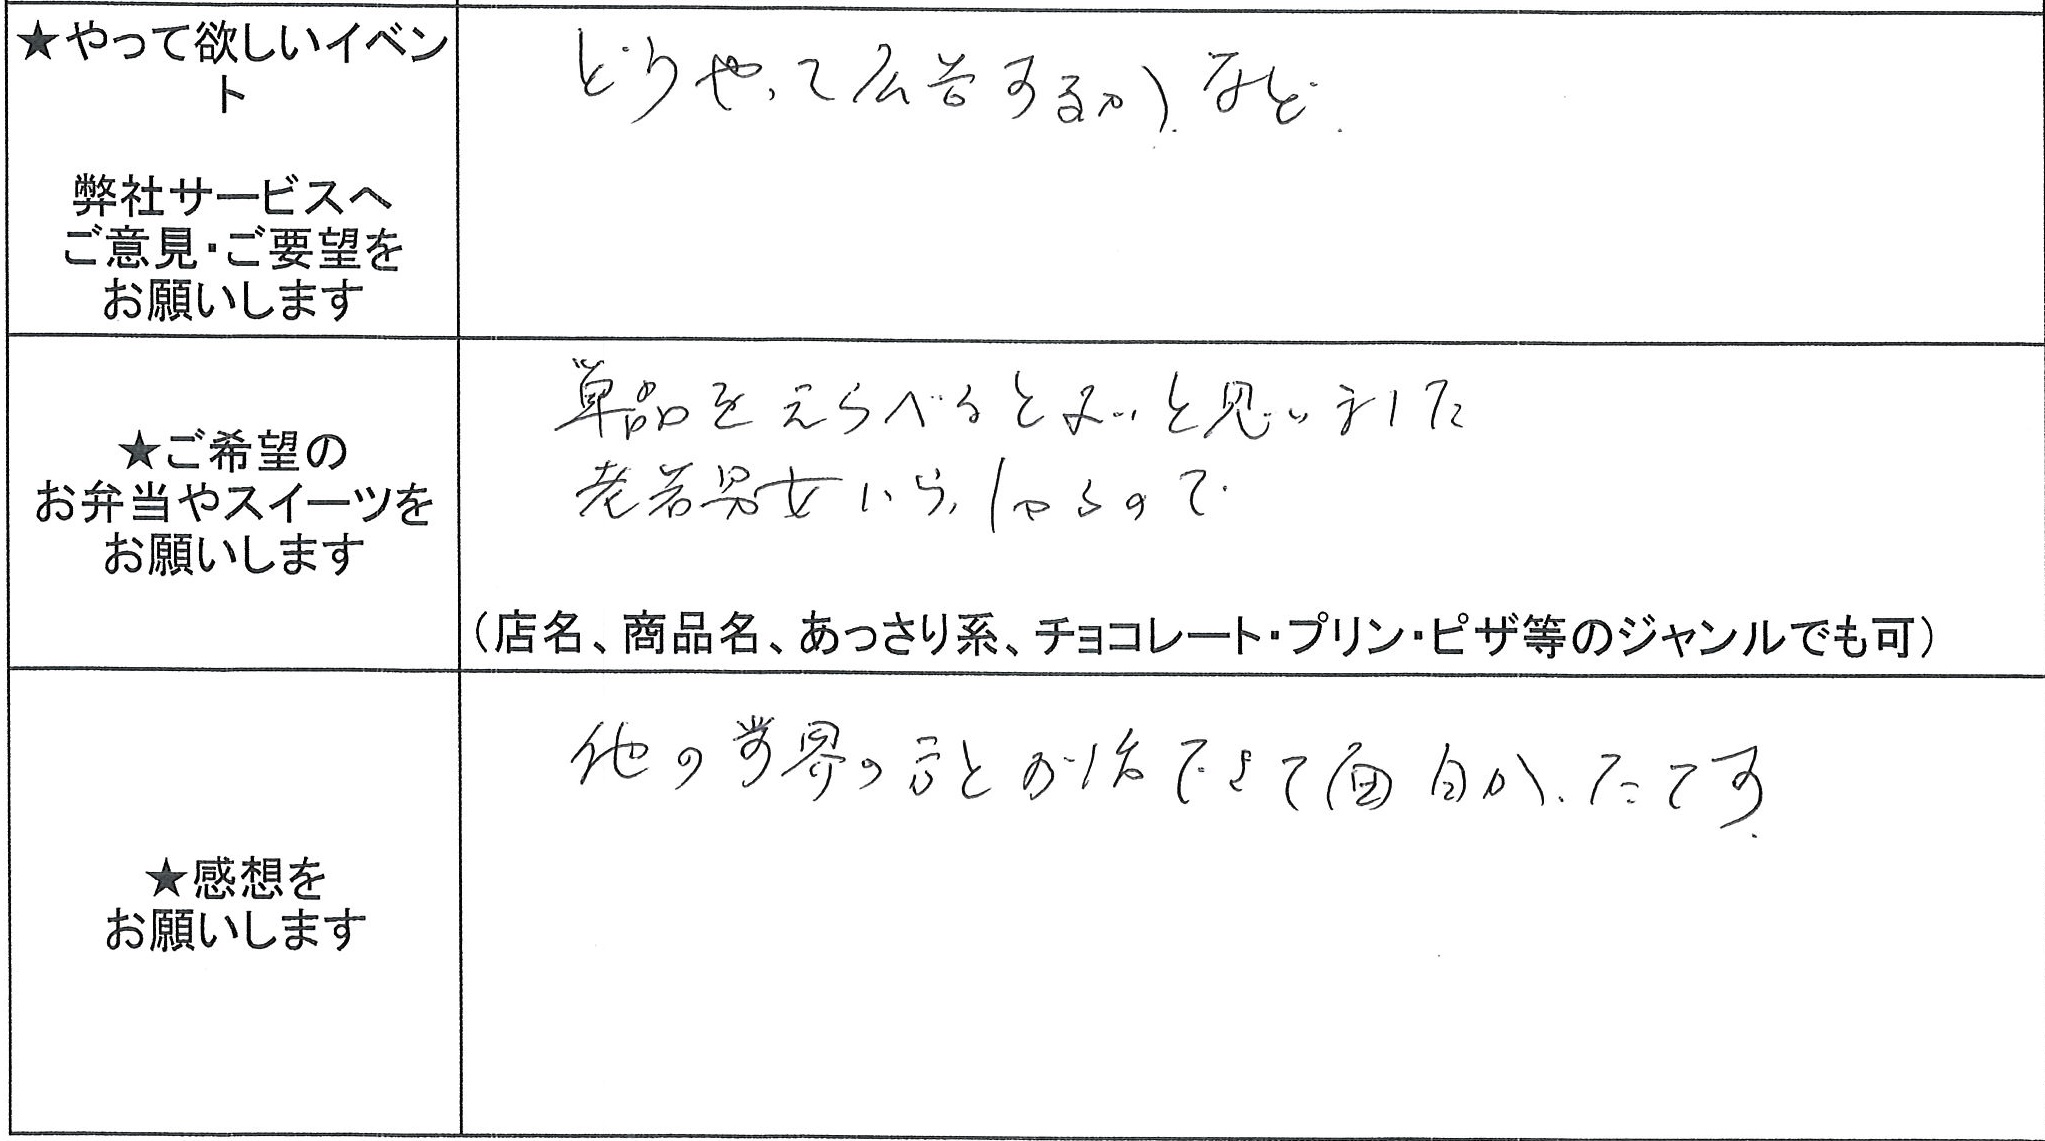 ★やって欲しいイベン
ト
弊社サービスへ
ご意見・ご要望を
お願いします
どうやって広告するか、など.
★ご希望の
お弁当やスイーツを
お願いします
単品をえらべるとよいと思いました
老若男女いらっしゃるので
（店名、商品名、あっさり系、チョコレート・プリン・ピザ等のジャンルでも可）
★感想を
お願いします
他の業界の方とお話できて面白かったです.